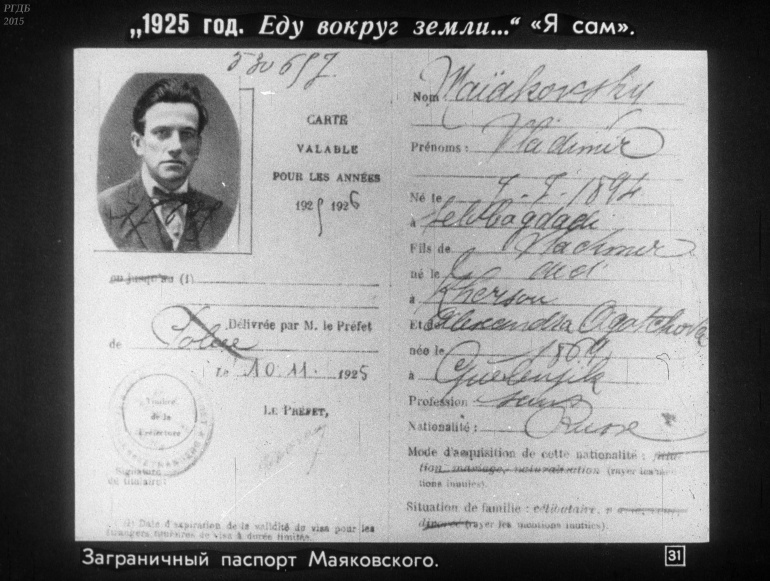 РГДБ
2015
„1925 год. Еду вокруг земли...“ «Я сам».
530697
CARTE
VALABLE
POUR LES ANNÉES
1925 1926
ou jusqu'au (1)
Délivrée par M. le Préfet
de Police
Le 10.11. 1925
LE PRÉFET,
Timbre
de la
Préfecture
Signature
du titulaire
(1) Date d'expiration de la validité du visa pour les
étrangers porteurs de visa à durée limitée.
Nom Maïakovsky
Prénoms: Vladimir
Né le 7-7-1894
à
Fils de Vladimir
né le
à Kherson
Et de Alexandra
née 186
à Guelenjik
Profession sans
Nationalité: Russe
Mode d'acquisition de cette nationalité: filia-
tion, mariage, naturalisation (rayer les men-
tions inutiles).
Situation de famille: célibataire,
divorcé (rayer les mentions inutiles).
Заграничный паспорт Маяковского.
31